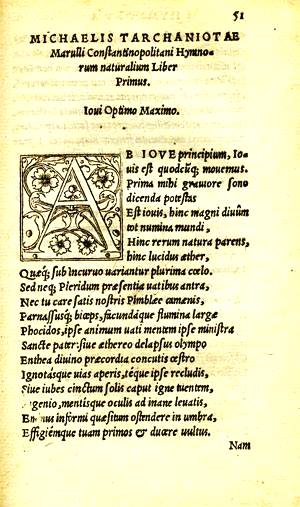 51
MICHAELIS TARCHANIOTAE
Marulli Constantinopolitani Hymno-
rum naturalium Liber
Primus.
Ioui Optimo Maximo.
AB IOVE principium, Io-
uis est quodcũq; mouemus.
Prima mihi grauiore sono
dicenda potestas
Est iouis, hinc magni diuũm
tot numina mundi,
Hinc rerum natura parens,
hinc lucidus æther,
Quæq; sub incuruo uariantur plurima cœlo.
Sed neq; Pieridum præsentia uatibus antra,
Nec tu care satis nostris Pimblæe camænis,
Parnassusq; biceps, fæcundáque flumina largæ
Phocidos, ipse animum uati mentem ipse ministra
Sancte pater: siue æthereo delapsus olympo
Enthea diuino præcordia concutis œstro
Ignotásque uias aperis, téque ipse recludis,
Siue iubes cinctum solis caput igne tuentem,
genio, mentísque oculis ad inane leuatis,
informi quæsitum ostendere in umbra,
Effigiémque tuam primos & ducere uultus.
Nam